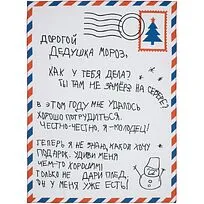 ДОРОГОЙ
ДЕДУШКА МОРОЗ,
КАК У ТЕБЯ ДЕЛА?
ТЫ ТАМ НЕ ЗАМЁРЗ НА СЕВЕРЕ?
В ЭТОМ ГОДУ МНЕ УДАЛОСЬ
ХОРОШО ПОТРУДИТЬСЯ.
ЧЕСТНО-ЧЕСТНО, Я-МОЛОДЕЦ!
ТЕПЕРЬ Я НЕ ЗНАЮ, КАКОЙ ХОЧУ
ПОДАРОК. УДИВИ МЕНЯ
ЧЕМ-ТО ХОРОШИМ!
ТОЛЬКО НЕ ДАРИ ПЛЕД,
ТЫ У МЕНЯ УЖЕ ЕСТЬ!